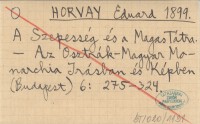 HORVAY Eduard 1899.
A Szepesség és a Magas Tátra.
– Az Osztrák-Magyar Mo-
narchia Írásban és Képben
(Budapest) 6: 275–324.